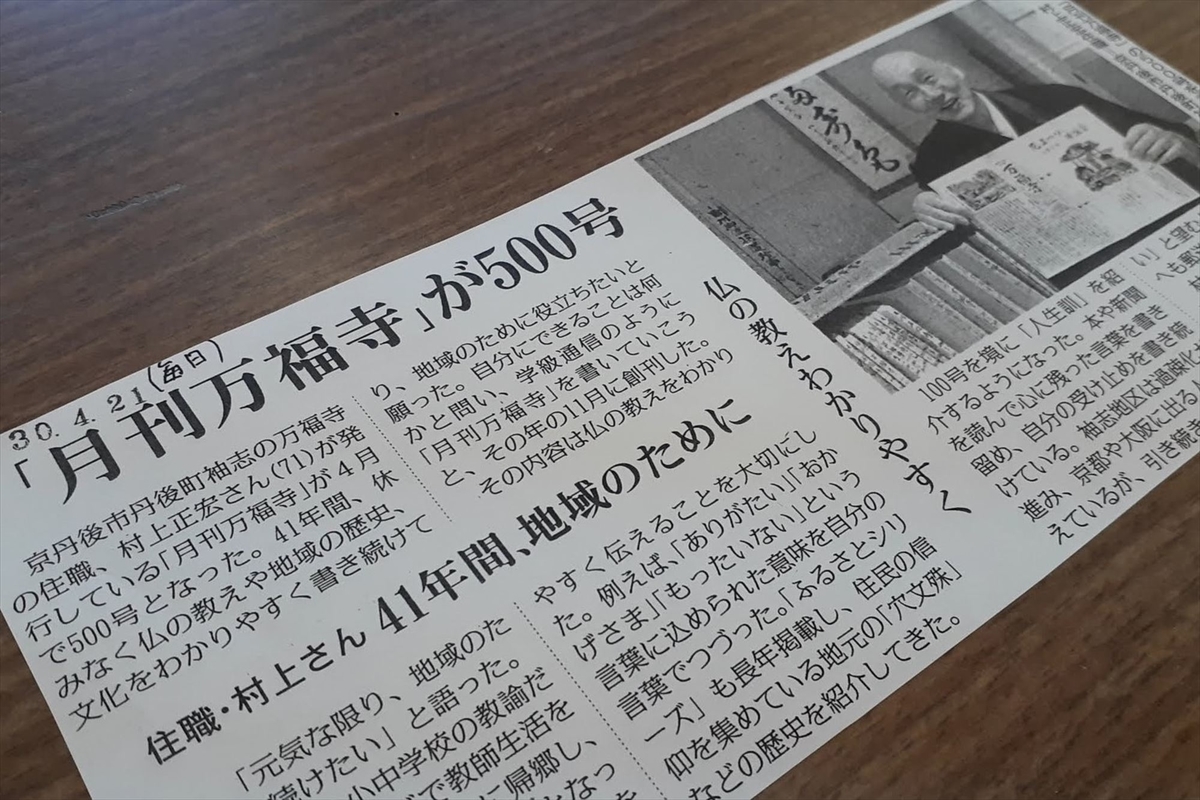 30.4.21(毎日)
「月刊万福寺」が500号
京丹後市丹後町袖志の万福寺
の住職、村上正宏さん(71)が発
行している「月刊万福寺」が4月
で500号となった。41年間、休
みなく仏の教えや地域の歴史、
文化をわかりやすく書き続けて
住職・村上さん 41年間、地域のために
「元気な限り、地域のた
続けたい」と語った。
小中学校の教諭だ
で教師生活を
に帰郷し、
となっ
り、地域のために役立ちたいと
願った。自分にできることは何
かと問い、学級通信のように
「月刊万福寺」を書いていこう
と、その年の11月に創刊した。
その内容は仏の教えをわかり
仏の教えわかりやすく
やすく伝えることを大切にし
た。例えば、「ありがたい」「おか
げさま」「もったいない」という
言葉に込められた意味を自分の
言葉でつづった。「ふるさとシリ
ーズ」も長年掲載し、住民の信
仰を集めている地元の「穴文殊」
などの歴史を紹介してきた。
100号を境に「人生訓」を紹
介するようになった。本や新聞
を読んで心に残った言葉を書き
留め、自分の受け止めを書き続
けている。袖志地区は過疎化
進み、京都や大阪に出る
えているが、引き続き
い」と望
へも郵